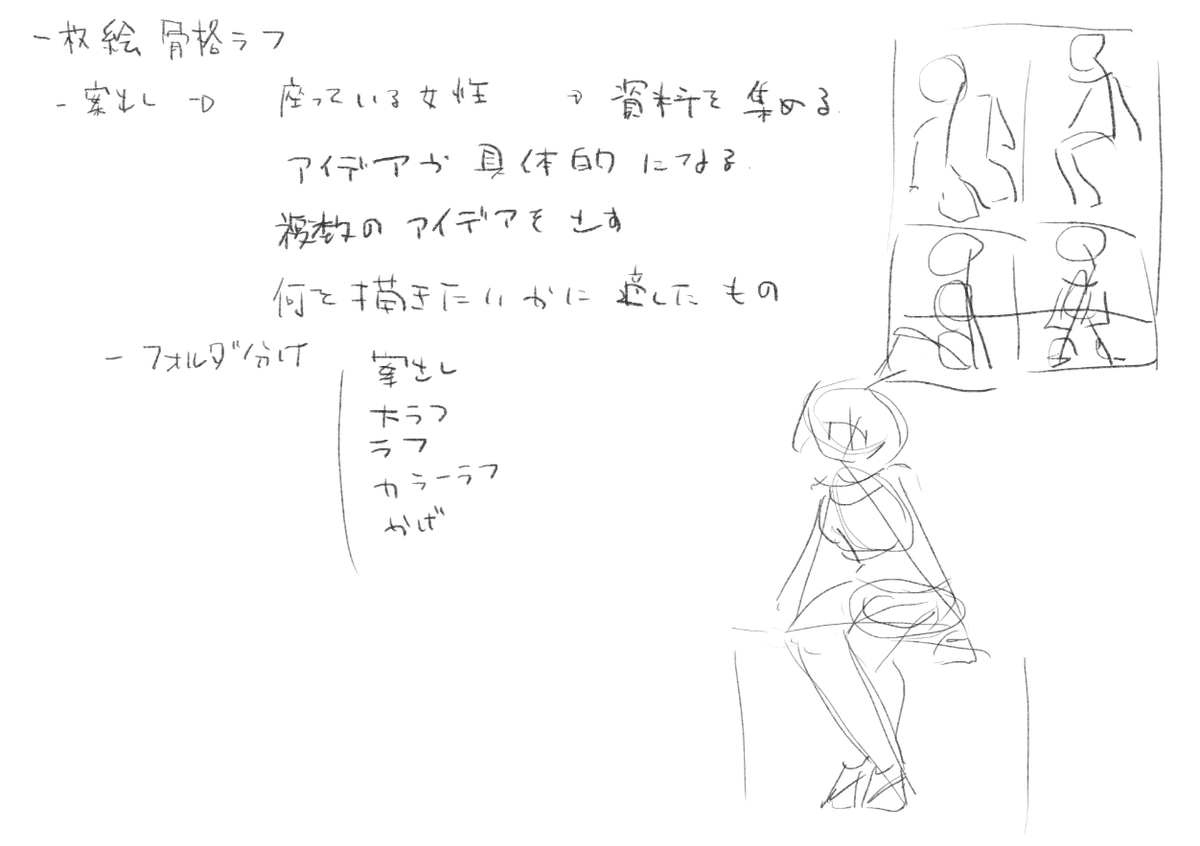 一枚絵 骨格ラフ
- 案出し → 座っている女性 → 資料を集める.
アイデアが具体的になる.
複数のアイデアを出す
何を描きたいかに適したもの
- フォルダ分け
案出し
大ラフ
ラフ
カラーラフ
かげ